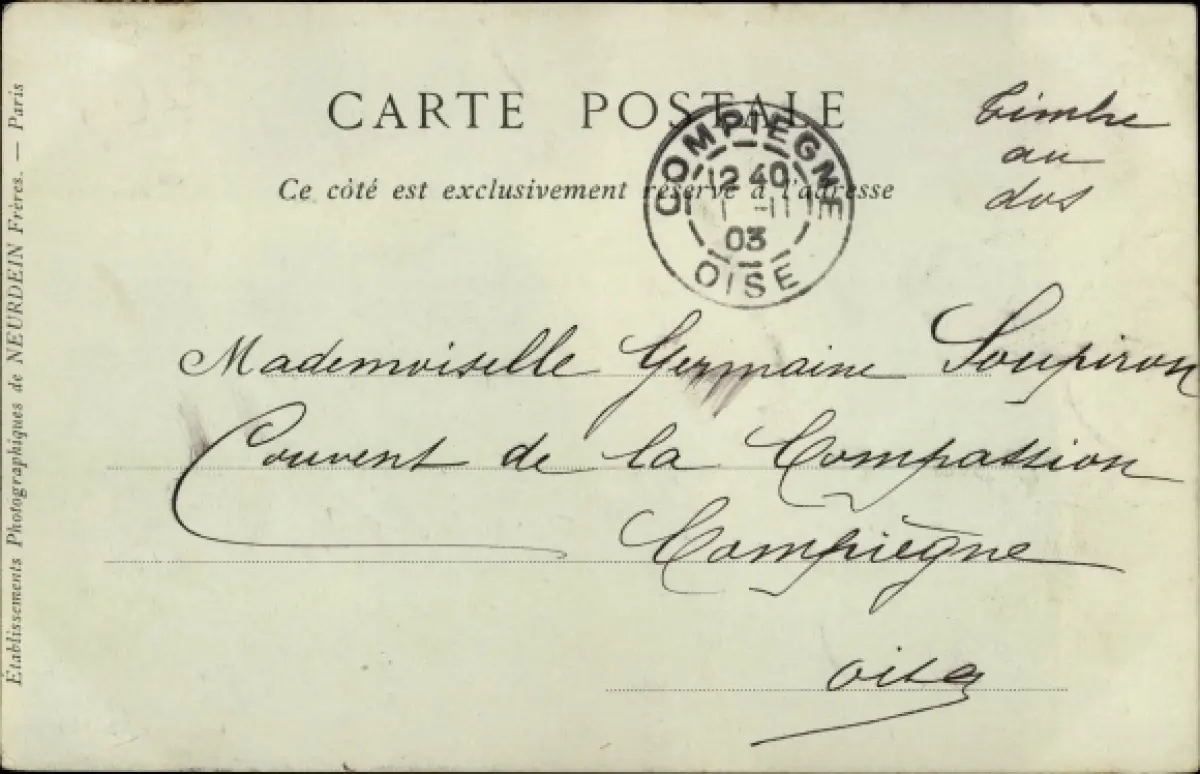 CARTE POSTALE
Ce côté est exclusivement réservé à l'adresse
Timbre
au
dos
COMPIEGNE
12 40
1 -11
03
OISE
Mademoiselle Germaine Soupiron
Couvent de la Compassion
Compiègne
Oise
Etablissements Photographiques de NEURDEIN Frères. — Paris